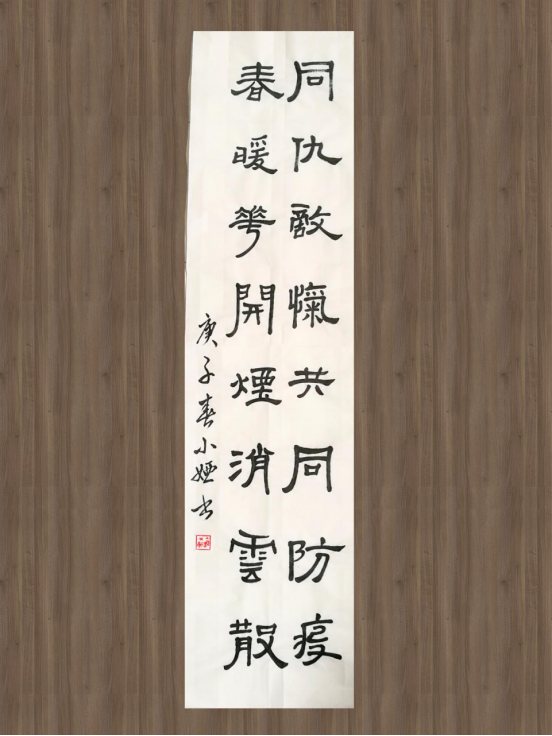 同仇敵愾共同防疫
春暖花開煙消雲散
庚子春小婭書